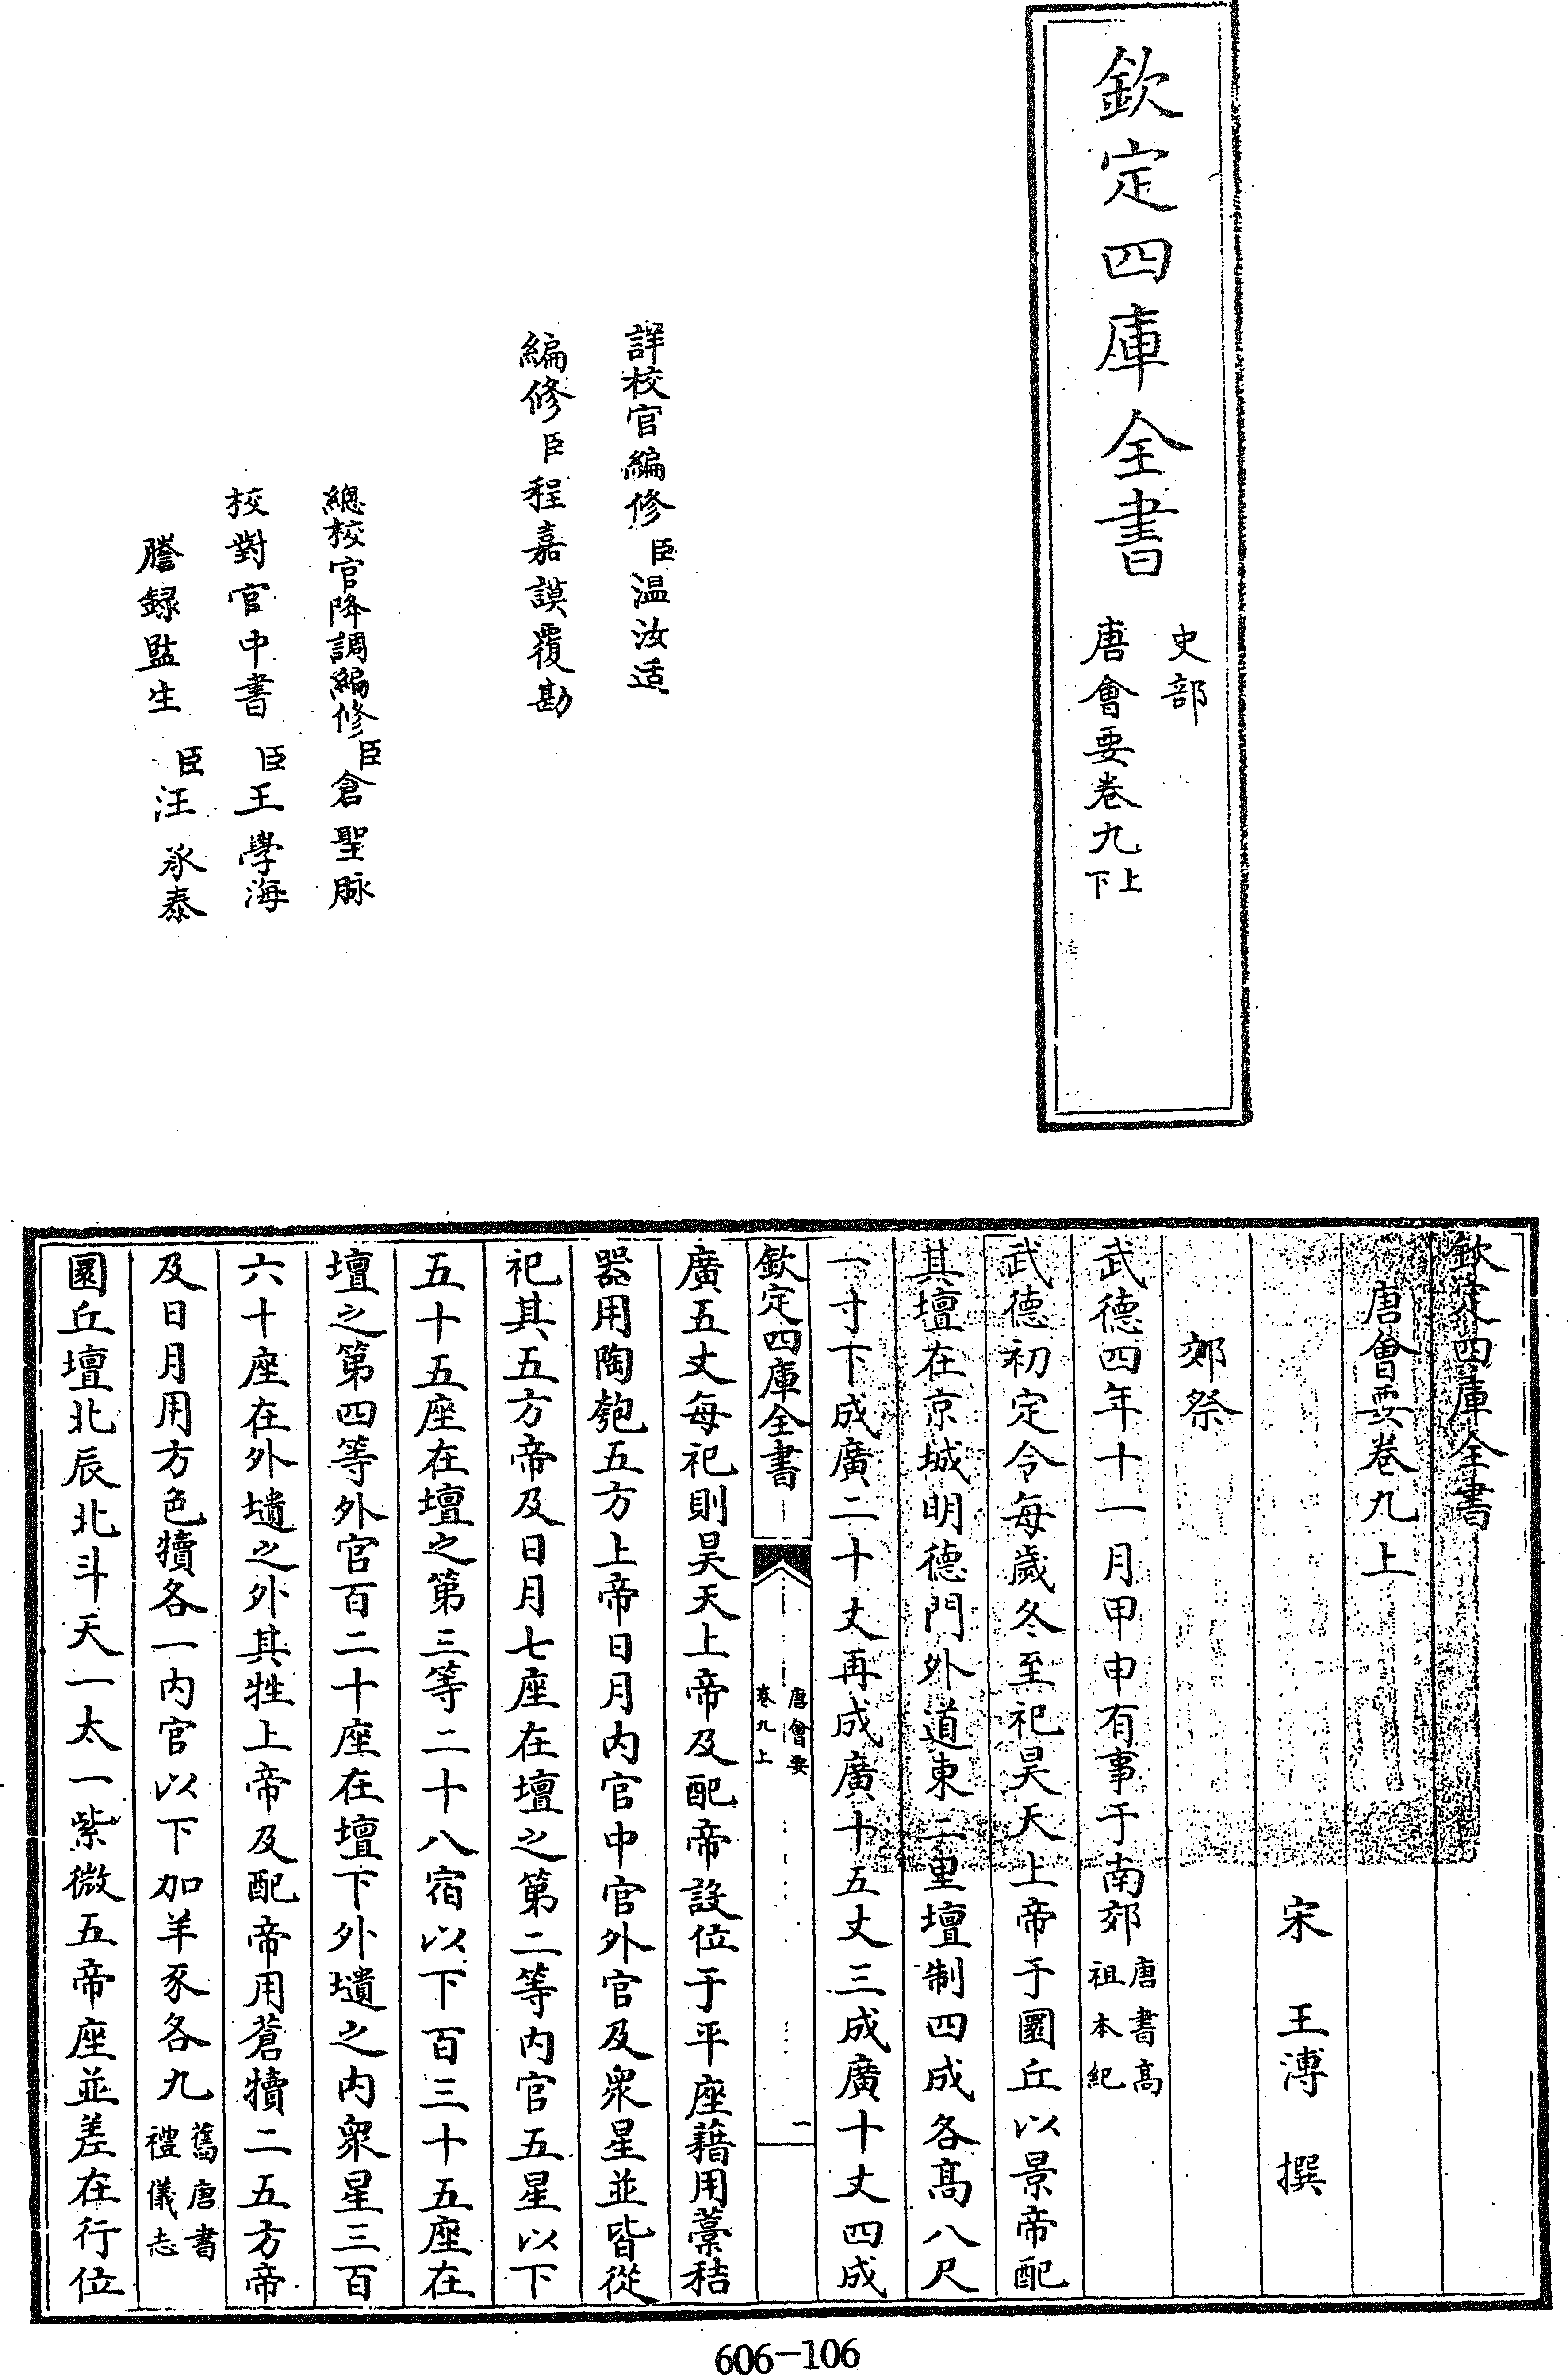 欽定四庫全書
史部
唐會要卷九上下
詳校官編修臣温汝适
編修臣程嘉謨覆勘
總校官降調編修臣倉聖脉
校對官中書臣王學海
謄録監生臣汪承泰
欽定四庫全書
唐會要卷九上
宋 王溥 撰
郊祭
武德四年十一月甲申有事于南郊唐書高祖本紀
武德初定令每歲冬至祀昊天上帝于圜丘以景帝配
其壇在京城明德門外道東二里壇制四成各高八尺
一寸下成廣二十丈再成廣十五丈三成廣十丈四成
欽定四庫全書
唐會要
卷九上
一
廣五丈每祀則昊天上帝及配帝設位于平座藉用藁秸
器用陶匏五方上帝日月内官中官外官及衆星並皆從
祀其五方帝及日月七座在壇之第二等内官五星以下
五十五座在壇之第三等二十八宿以下百三十五座在
壇之第四等外官百二十座在壇下外壝之内衆星三百
六十座在外壝之外其牲上帝及配帝用蒼犢二五方帝
及日月用方色犢各一内官以下加羊豕各九舊唐書禮儀志
圜丘壇北辰北斗天一太一紫微五帝座並差在行位
606-106